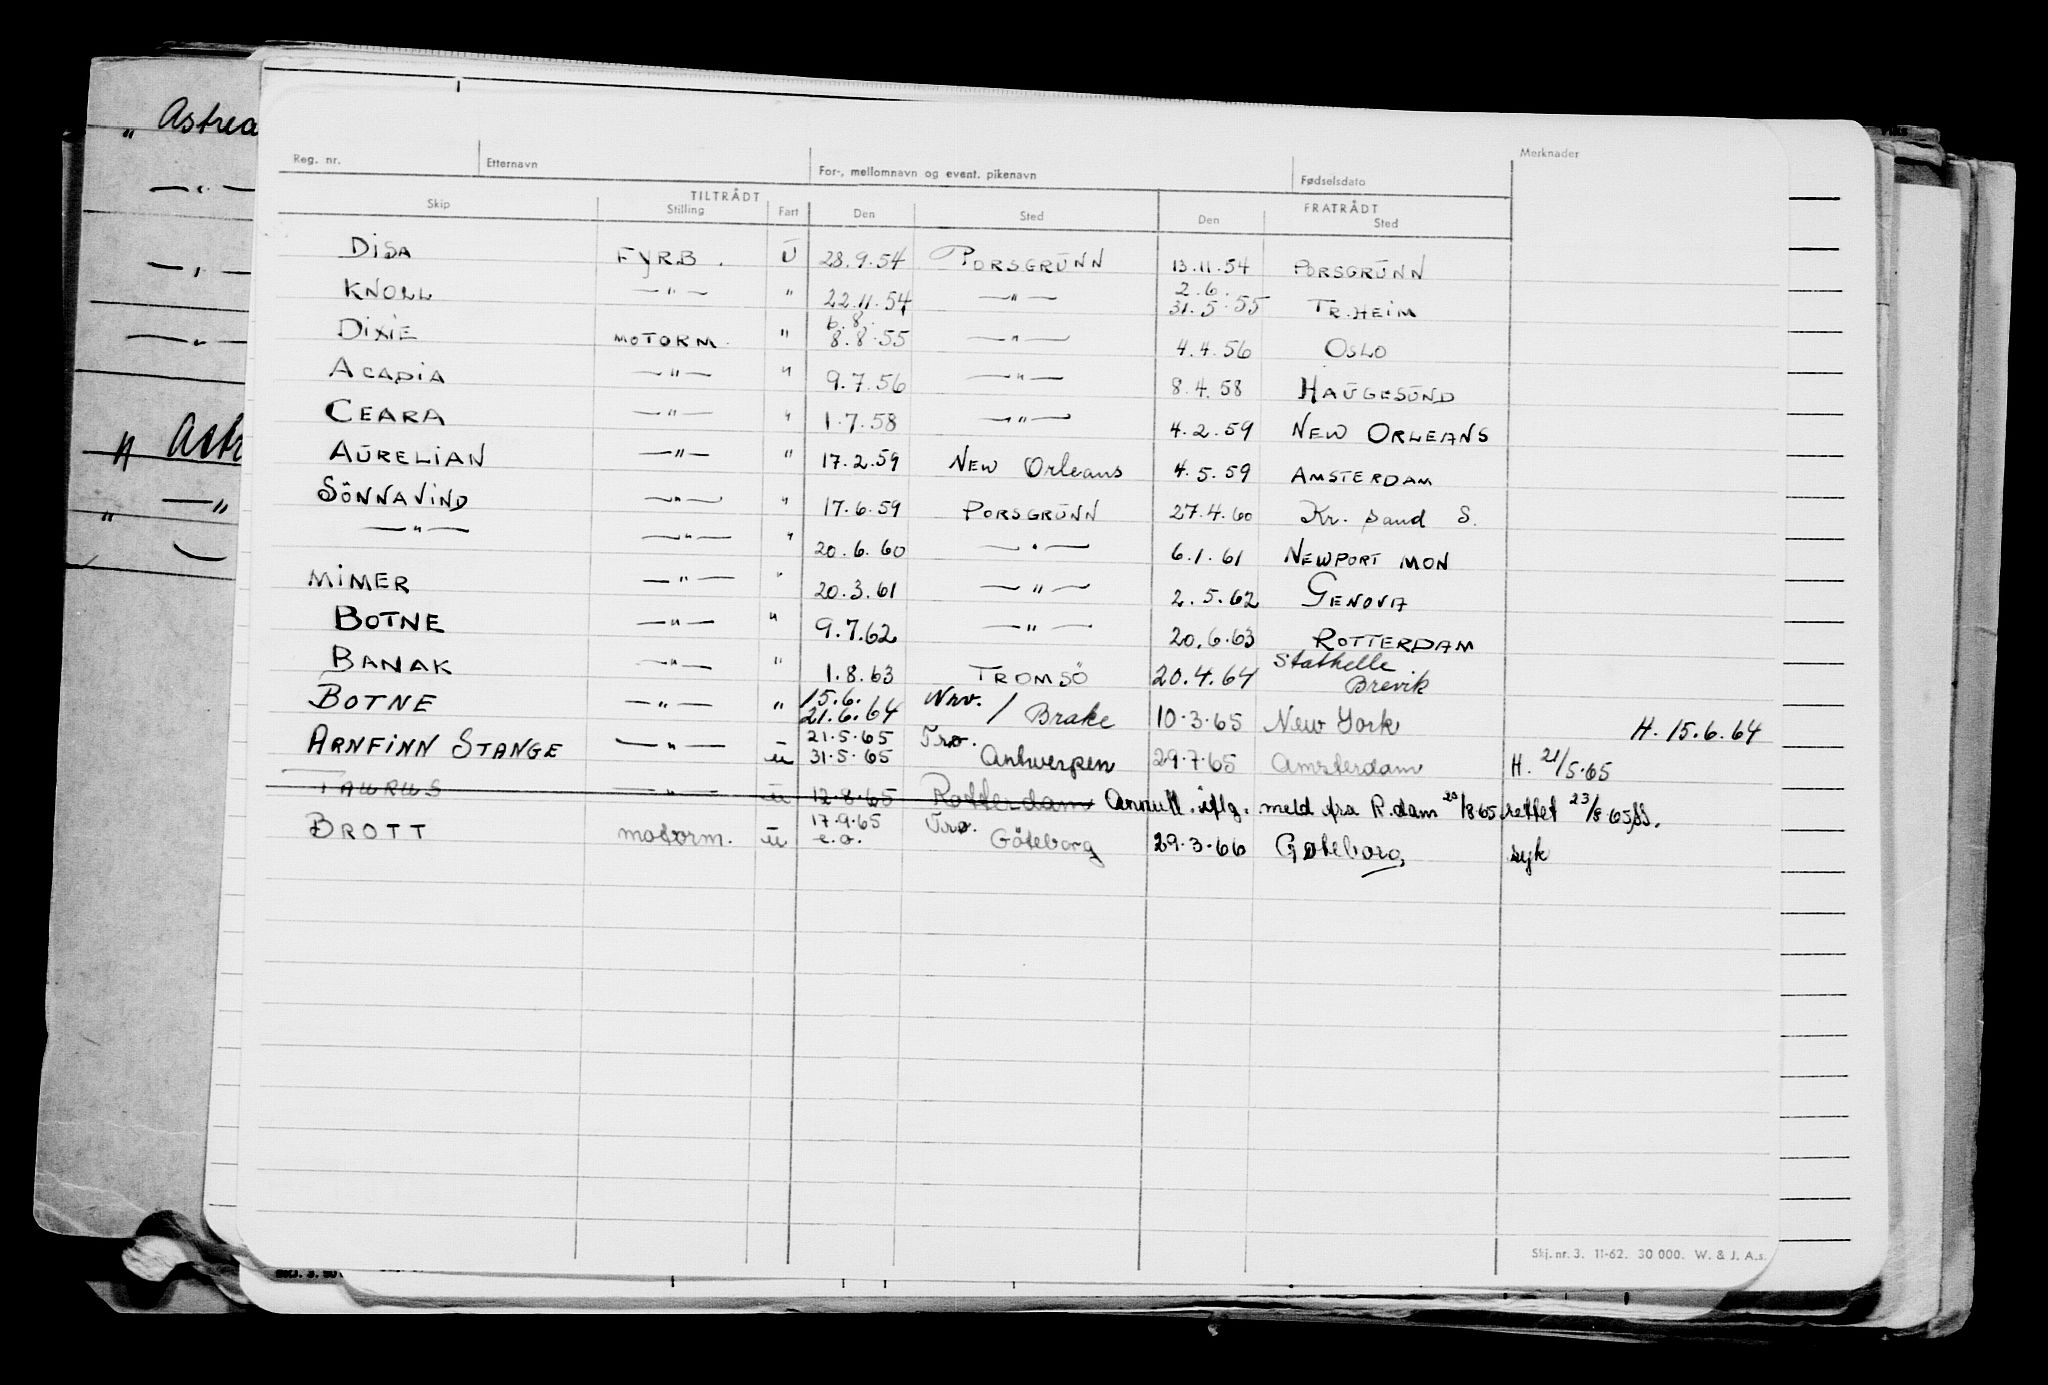 „ Astrea
—„—
—„—
—„—
„ Astr
„ —„
Reg. nr. Etternavn For-, mellomnavn og event. pikenavn Fødselsdato Merknader
TILTRÅDT FRATRÅDT
Skip Stilling Fart Den Sted Den Sted
DISA FYRB. Ü 28.9.54 PORSGRÜNN 13.11.54 PORSGRÜNN
KNOLL —„— „ 22.11.54 —„— 2.6. 31.5.55 TR.HEIM
DIXIE MOTORM. „ 6.8. 8.8.55 —„— 4.4.56 OSLO
ACADIA —„— „ 9.7.56 —„— 8.4.58 HAÜGESÜND
CEARA —„— „ 1.7.58 —„— 4.2.59 NEW ORLEANS
AÜRELIAN —„— „ 17.2.59 NEW Orleans 4.5.59 AMSTERDAM
SÖNNAVIND —„— „ 17.6.59 PORSGRÜNN 27.4.60 Kr. sand S.
—„— —„— „ 20.6.60 —„— 6.1.61 NEWPORT MON
MIMER —„— „ 20.3.61 —„— 2.5.62 GENOVA
BOTNE —„— „ 9.7.62 —„— 20.6.63 ROTTERDAM
BANAK —„— „ 1.8.63 TROMSÖ 20.4.64 Stathelle Brevik
BOTNE —„— „ 15.6. 21.6.64 Nrv. / Brake 10.3.65 New York H. 15.6.64
ARNFINN STANGE —„— ü 21.5.65 31.5.65 Tro. Antwerpen 29.7.65 Amsterdam H. 21/5.65
TAURUS —„— ü 12.8.65 Rotterdam Annull. iflg. meld fra R.dam 20/8 65 rettet 23/8.65
BROTT motorm. ü 17.9.65 e.o. Tro. Göteborg 29.3.66 Göteborg syk
Skj. nr. 3. 11-62. 30 000. W. & J. A.s.